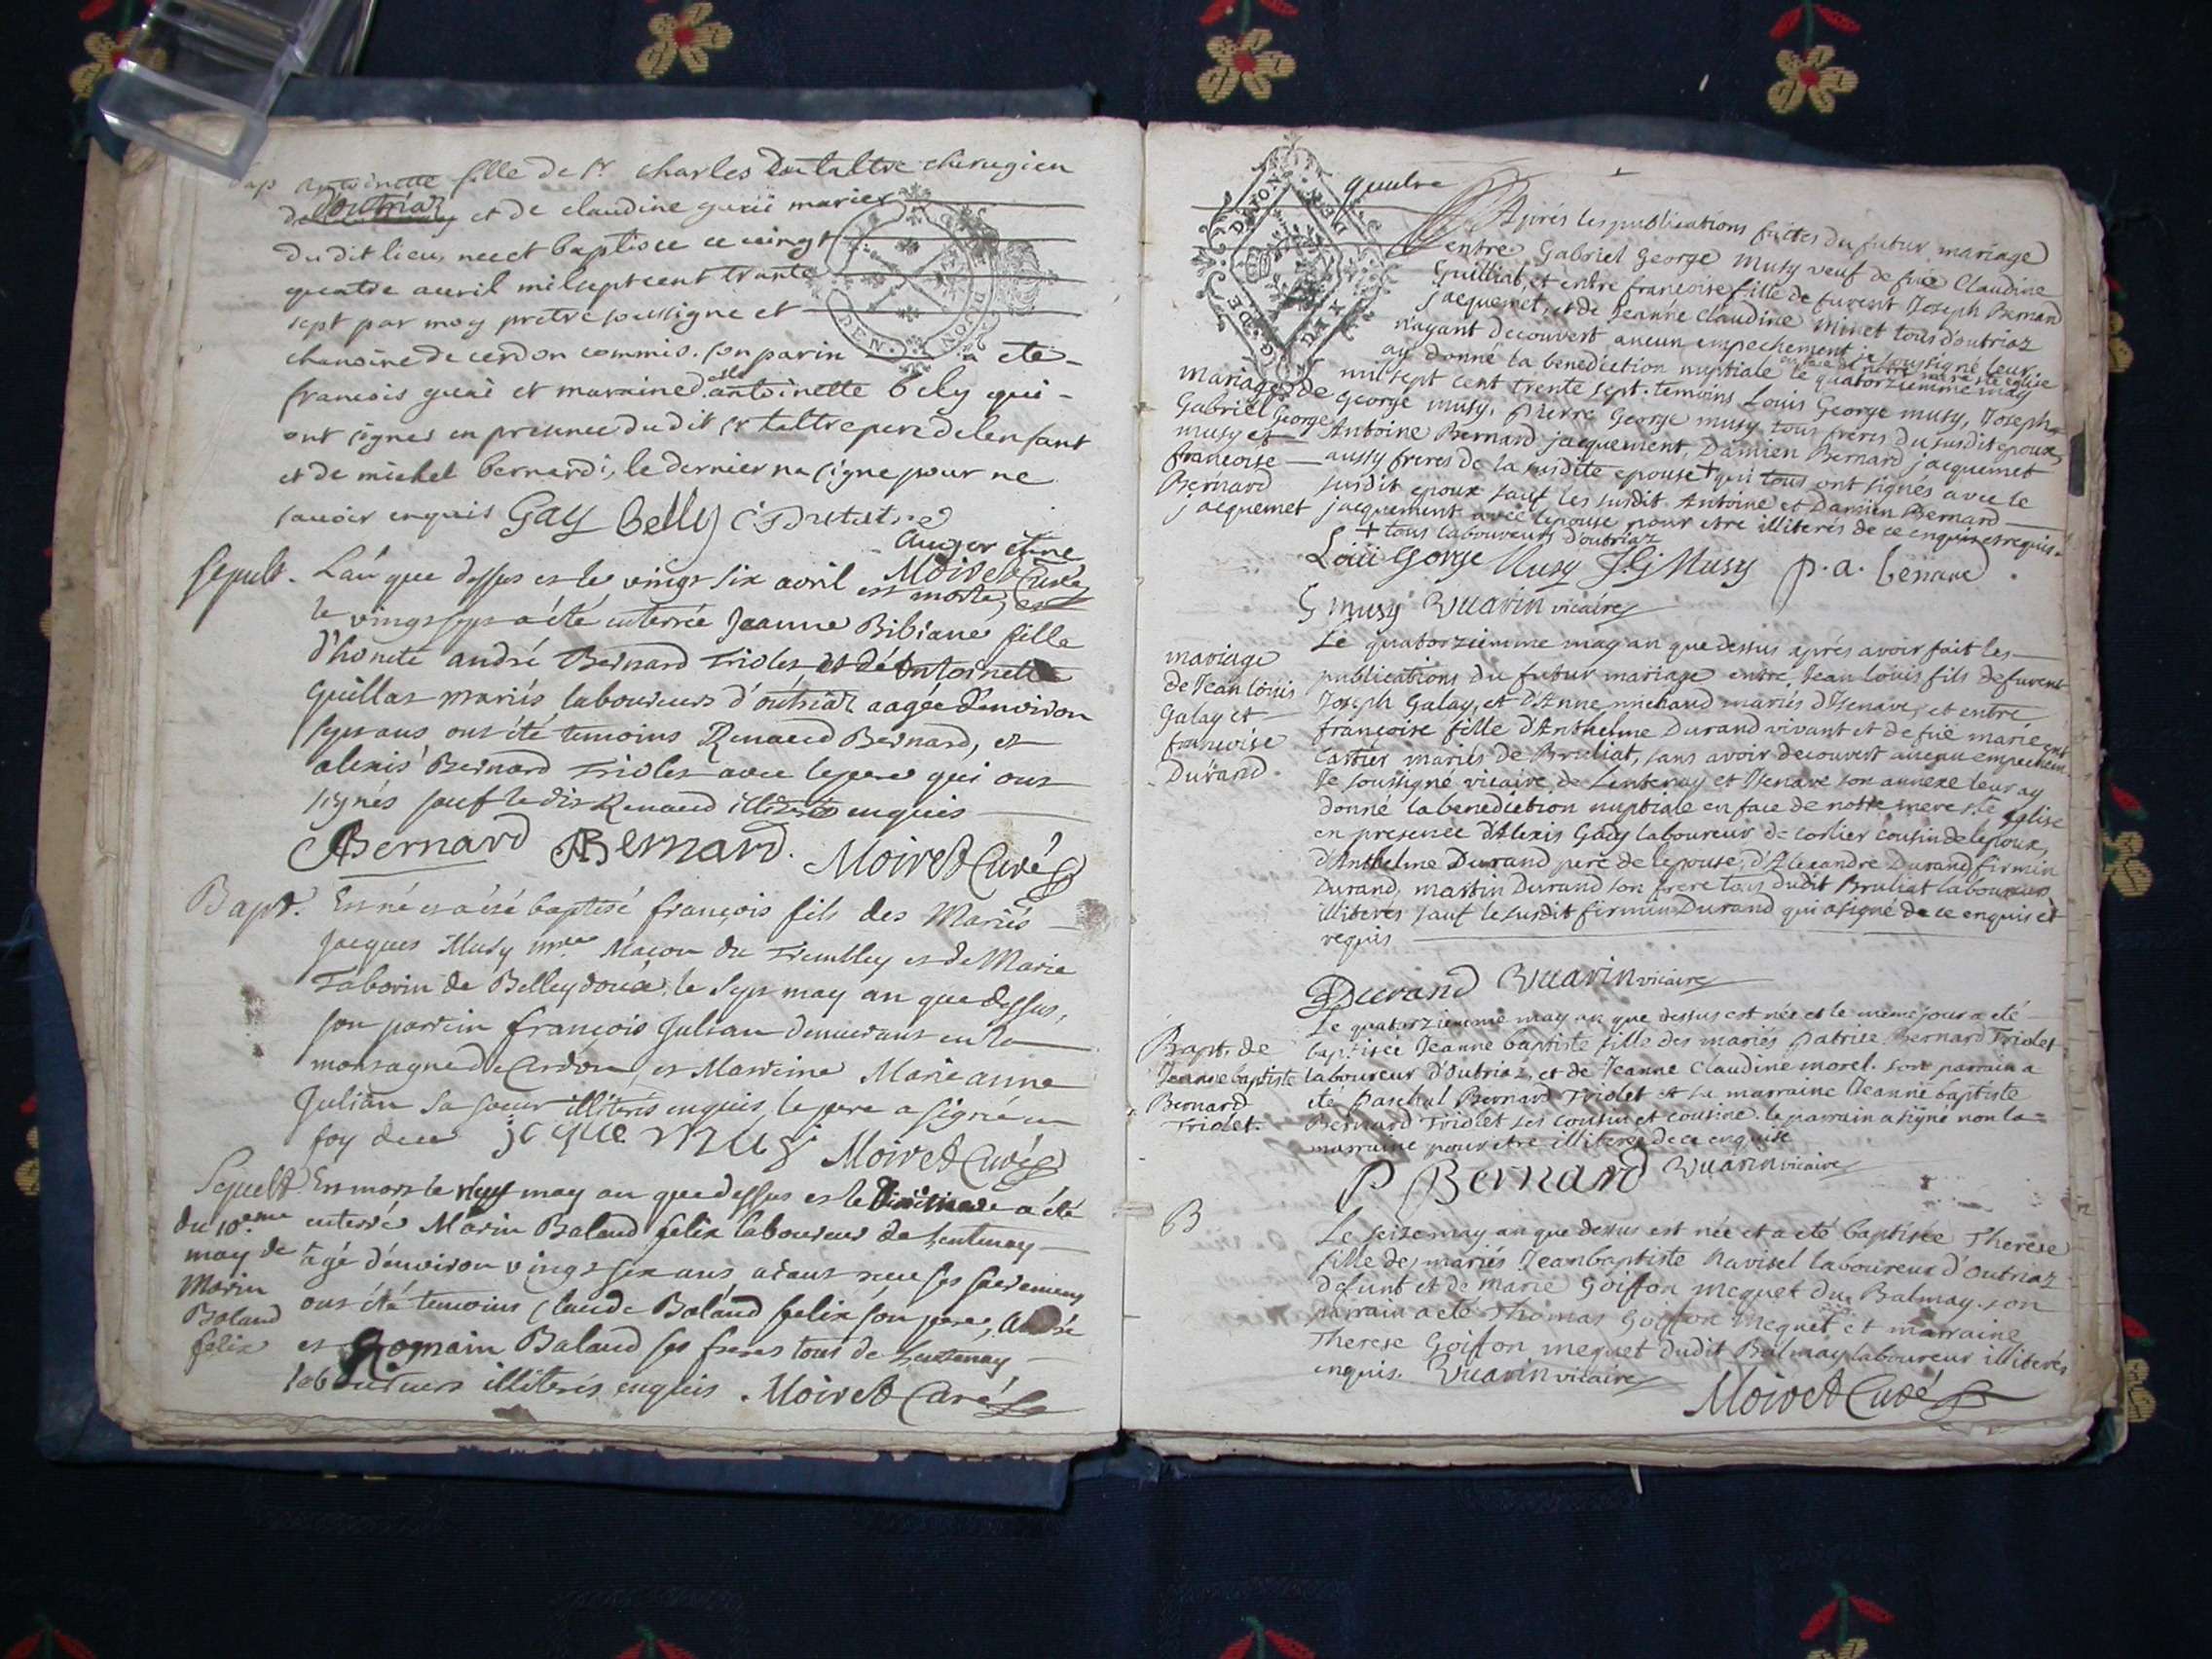 Bap antoinette fille de Sr charles Dutaltre chirugien
d'outriaz et de claudine guëi mariez
du dit lieu, neeet baptisee ce vingt
quatre avril milsept cent trante
sept par moy pretre soussigne et
chanoine de cerdon commis. son parin a ete
francois gueï et maraine dlle antoinette bely qui
ont signes en presence du dit sr taltre pere de lenfant
et de michel bernardi, le dernier na signe pour ne
savoir enquis Gay Belly C Dutatre
Moiret Curé
Sepult. L'an que dessus et le vingt six avril est morte, et
le vingt sept a été enterrée Jeanne Bibiane fille
d'honete andré Bernard Triolet, et dé Antoinette
Guillat mariés laboureurs d'outriaz aagée d'environ
sept ans ont été temoins Renaud Bernard, et
alexis Bernard Triolet avec le pere qui ont
signés sauf le dit Renaud illiteré enquis
ABernard ABernard. Moiret Curé
Bapt. Est né et a été baptisé françois fils des Mariés
Jacques Musy mre Maçon du Trembley et de Marie
Taborin de Belleydoux, le sept may an que dessus,
son parrein françois Julian demeurant en la
montagne de Cerdon, et Marreine Marie anne
Julian sa soeur illiterés enquis, le pere a signé en
foy de ce jcque musi Moiret Curé
Sepult Est mort le neuf may an que dessus et le dixieme a été
du 10.eme enterré Marin Baland felix laboureur de Lentenay
may de agé d'environ vingt six ans aiant receu ses sacremens
Marin ont été temoins Claude Baland felix son pere, André
Baland
felix et Romain Baland ses freres tous de Lentenay
laboureurs illiterés enquis. Moiret Curé
quatre
Aprés les publications faittes du futur mariage
entre Gabriel George Musy veuf de füe Claudine
Guilliat, et entre françoise fille de furent Joseph Bernard
jacquemet, et de Jeanne Claudine Minet tous d'outriaz
n'ayant decouvert aucun empechement je soussigné leur
ay donné la benediction nuptiale en face de notre mere ste eglise le quatorziemme may
mil sept cent trente sept. temoins Louis George musy, Joseph
mariage de
Gabriel George
musy et
françoise
Bernard
jacquemet
George musy, pierre George musy tous freres du susdit epoux,
Antoine Bernard jacquement, Damien Bernard jacquemet
aussy freres de la susdite epouse + qui tous ont signés avec le
susdit epoux sauf les susdit Antoine et Damien Bernard
jacquement avec lepouse pour etre illiterés de ce enquis et requis.
+ tous laboureurs d'outriaz
Loüi George Musy J.G Musy p. a. bernard
G Musy Vuarin vicaire
mariage
de Jean loüis
Galay et
françoise
Durand.
Le quatorziemme may an que dessus aprés avoir fait les
publications du futur mariage entre Jean loüis fils de furent
Joseph Galay, et d'Anne michaud mariés d'Izenave, et entre
françoise fille d'Anthelme Durand vivant et de füe marie
Cartier mariés de Bruliat, sans avoir decouvert aucun empechement
Je soussigné vicaire de Lentenay et Izenave son annexe leur ay
donné la benediction nuptiale en face de notre mere ste eglise
en presence d'Alexis Galay laboureur de corlier cousin de lepoux,
d'Anthelme Durand pere de lepouse, d'Alexandre Durand, firmin
Durand, martin Durand son frere tous dudit Bruliat laboureurs
illiterés sauf le susdit firmin Durand qui a signé de ce enquis et
requis
Durand Vuarin vicaire
Bapt. de
Jeanne baptiste
Bernard
Triolet.
Le quatorziemme may an que dessus est née et le même jour a eté
baptisée Jeanne baptiste fille des mariés patrice Bernard Triolet
laboureur d'Outriaz, et de Jeanne Claudine morel. son parrain a
eté paschal Bernard Triolet et sa marraine Jeanne baptiste
Bernard Triolet ses cousin et cousine. le parrain a signé non la
marraine pour etre illiterée de ce enquise
P Bernard Vuarin vicaire
B
Le seize may an que dessus est née et a eté baptisée Therese
fille des mariés Jeanbaptiste Ravisel laboureur d'Outriaz
defunt et de marie Goiffon mequet du Balmay. son
parrain a eté Thomas Goiffon mequet et marraine
Therese Goiffon mequet dudit Balmay laboureur illiterés
enquis. Vuarin vicaire
Moiret Curé